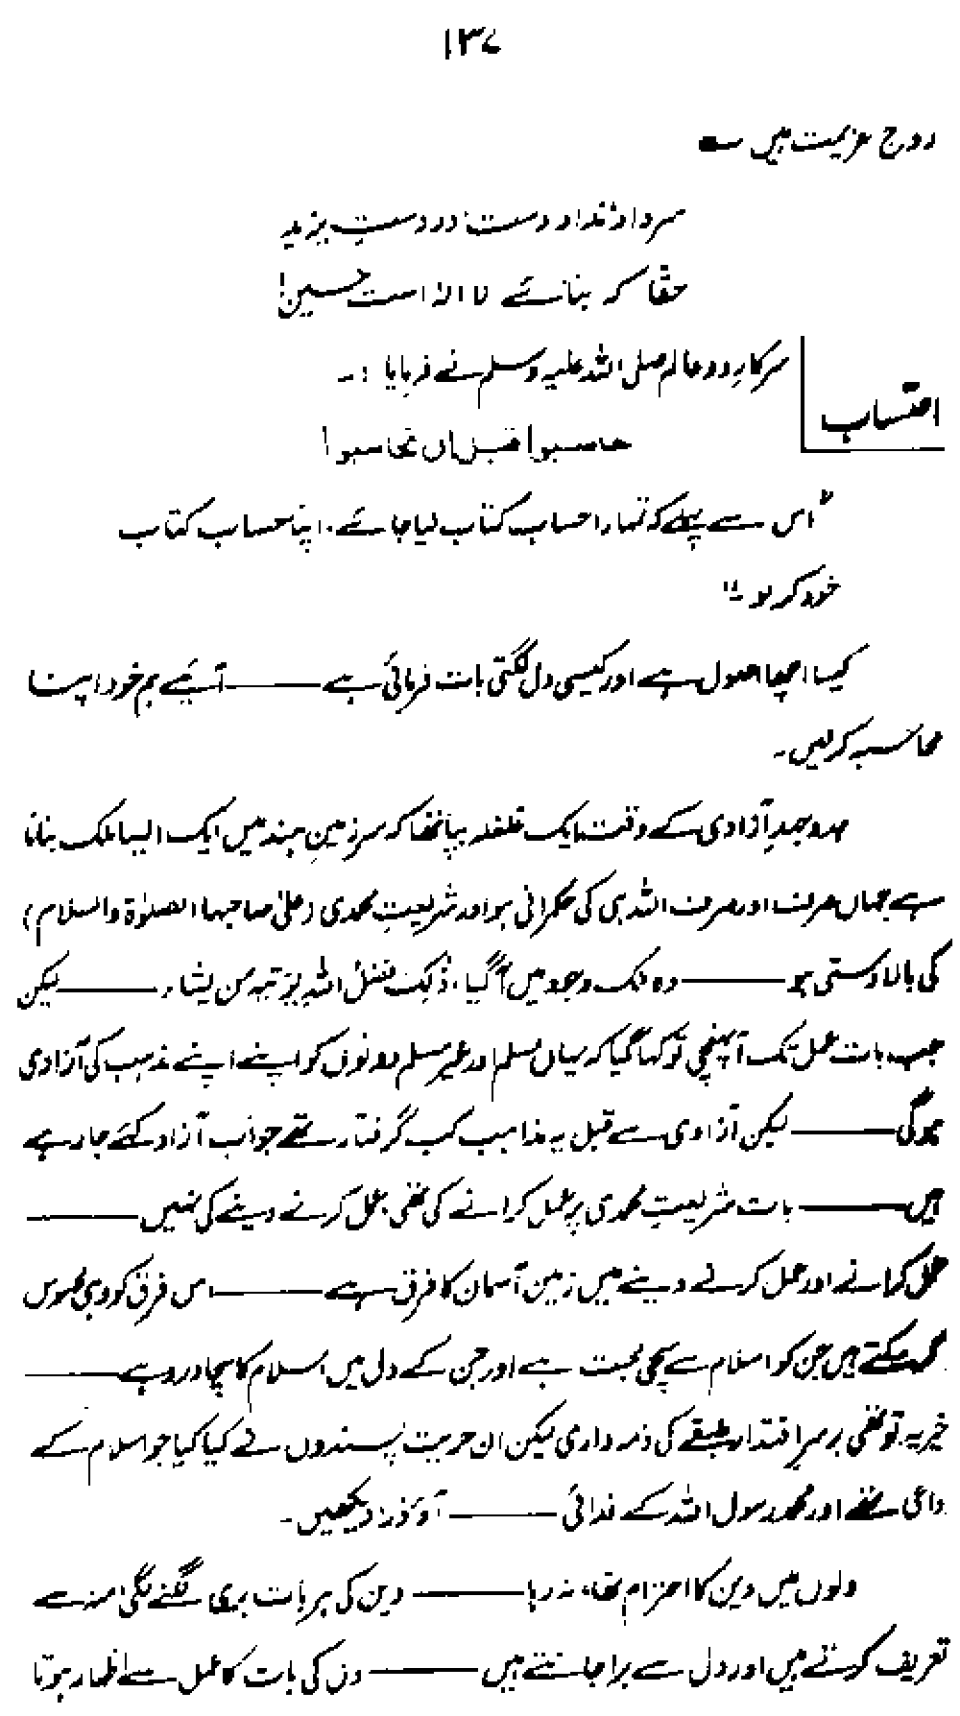 ۱۳۷
روح عزیمت ہیں ؎
سر داد نداد دست در دستِ یزید
حقّا کہ بنائے لا الٰہ است حسین!
احتساب
سرکارِ دو عالم صلی اللہ علیہ وسلم نے فرمایا :۔
حاسبوا قبل ان تحاسبوا
"اس سے پہلے کہ تمہارا حساب کتاب لیا جائے۔ اپنا حساب کتاب
خود کر لو۔"
کیسا اچھا اصول ہے اور کیسی دل لگتی بات فرمائی ہے ——— آئیے ہم خود اپنا
محاسبہ کریں۔
جدوجہدِ آزادی کے وقت ایک غلغلہ بپا تھا کہ سرزمینِ ہند میں ایک ایسا ملک بنانا
ہے جہاں صرف اور صرف اللہ ہی کی حکمرانی ہو اور شریعتِ محمدی (علیٰ صاحبہا الصلوٰۃ والسلام)
کی بالا دستی ہو ——— وہ ملک وجود میں آگیا، ذٰلک فضل اللہ یؤتیہ من یشاء ——— لیکن
جب بات عمل تک آپہنچی تو کہا گیا کہ یہاں مسلم اور غیر مسلم دونوں کو اپنے اپنے مذہب کی آزادی
ہوگی ——— لیکن آزادی سے قبل یہ مذاہب کب گرفتار تھے جو اب آزاد کئے جا رہے
ہیں ——— بات شریعتِ محمدی پر عمل کرانے کی تھی، عمل کرنے دینے کی نہیں ———
عمل کرانے اور عمل کرنے دینے میں زمین آسمان کا فرق ہے ——— اس فرق کو وہی محسوس
کر سکتے ہیں جن کو اسلام سے سچی محبت ہے اور جن کے دل میں اسلام کا سچا درد ہے ———
خیر یہ تو تھی برسرِ اقتدار طبقے کی ذمہ داری لیکن ان حریت پسندوں نے کیا کیا جو اسلام کے
داعی تھے اور محمد رسول اللہ کے فدائی ——— آؤ ذرا دیکھیں۔
دلوں میں دین کا احترام تھا، نہ رہا ——— دین کی ہر بات بری لگنے لگی، منہ سے
تعریف کرتے ہیں اور دل سے برا جانتے ہیں ——— دل کی بات کا عمل سے اظہار ہوتا